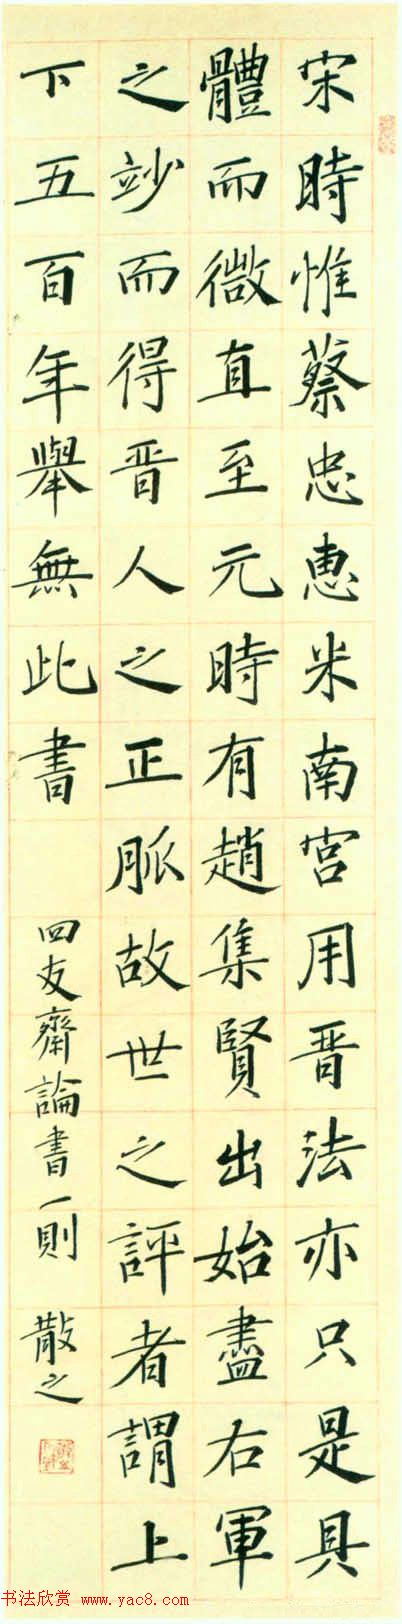 宋時惟蔡忠惠米南宮用晋法亦只是具
體而微直至元時有趙集賢出始盡右軍
之竗而得晋人之正脈故世之評者謂上
下五百年舉無此書
四友齋論書一則 散之
书法欣赏 www.yac8.com